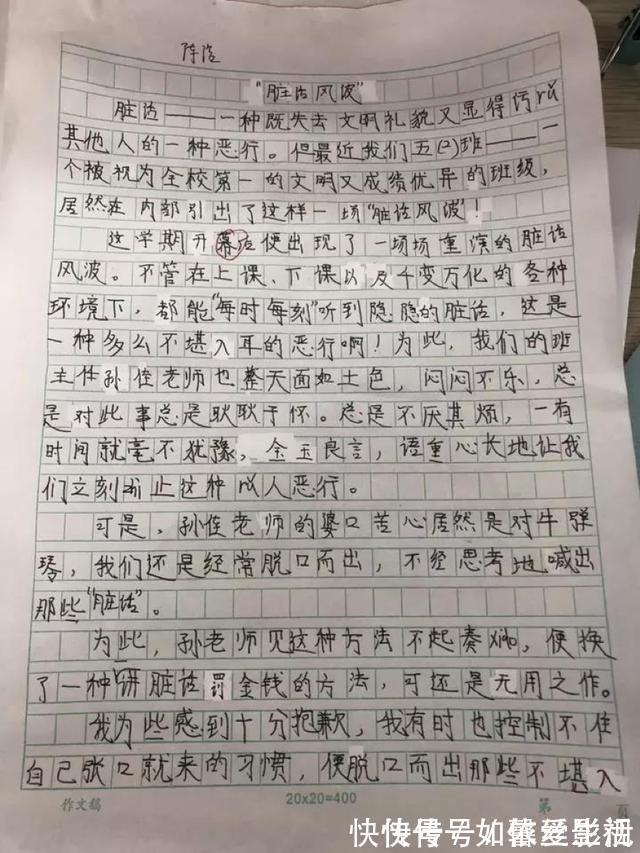 陈浩
“脏话风波”
脏话——一种既失去文明礼貌又显得污
其他人的一种恶行。但最近我们五(2)班——一
个被视为全校第一的文明又成绩优异的班级，
居然在内部引出了这样一场“脏话风波”！
这学期开幕后便出现了一场场重演的脏话
风波。不管在上课、下课以及千变万化的各种
环境下，都能“每时每刻”听到隐隐的脏话，这是
一种多么不堪入耳的恶行啊！为此，我们的班
主任孙佳老师也整天面如土色，闷闷不乐，总
是对此事总是耿耿于怀。总是不厌其烦，一有
时间就毫不犹豫，金玉良言，语重心长地让我
们立刻停止这种 人恶行。
可是，孙佳老师的婆口苦心居然是对牛弹
琴，我们还是经常脱口而出，不经思考地喊出
那些“脏话”。
为此，孙老师见这种方法不起奏效，便换
了一种讲脏话罚金钱的方法，可还是无用之作。
我为些感到十分抱歉，我有时也控制不住
自己张口就来的习惯，便脱口而出那些不堪入
作文稿
20×20=400
第 页
快传号